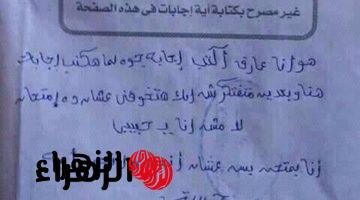 غير مصرح بكتابة أية إجابات فى هذه الصفحة
هو أنا عارف أكتب إجابة جوه لما هكتب إجابات
هنا وبعدين متفتكرش إنك هتخوفنى عشان ده إمتحان
لا مش أنا يا حبيبى
أنا بمتحن بس عشان
الزهراء